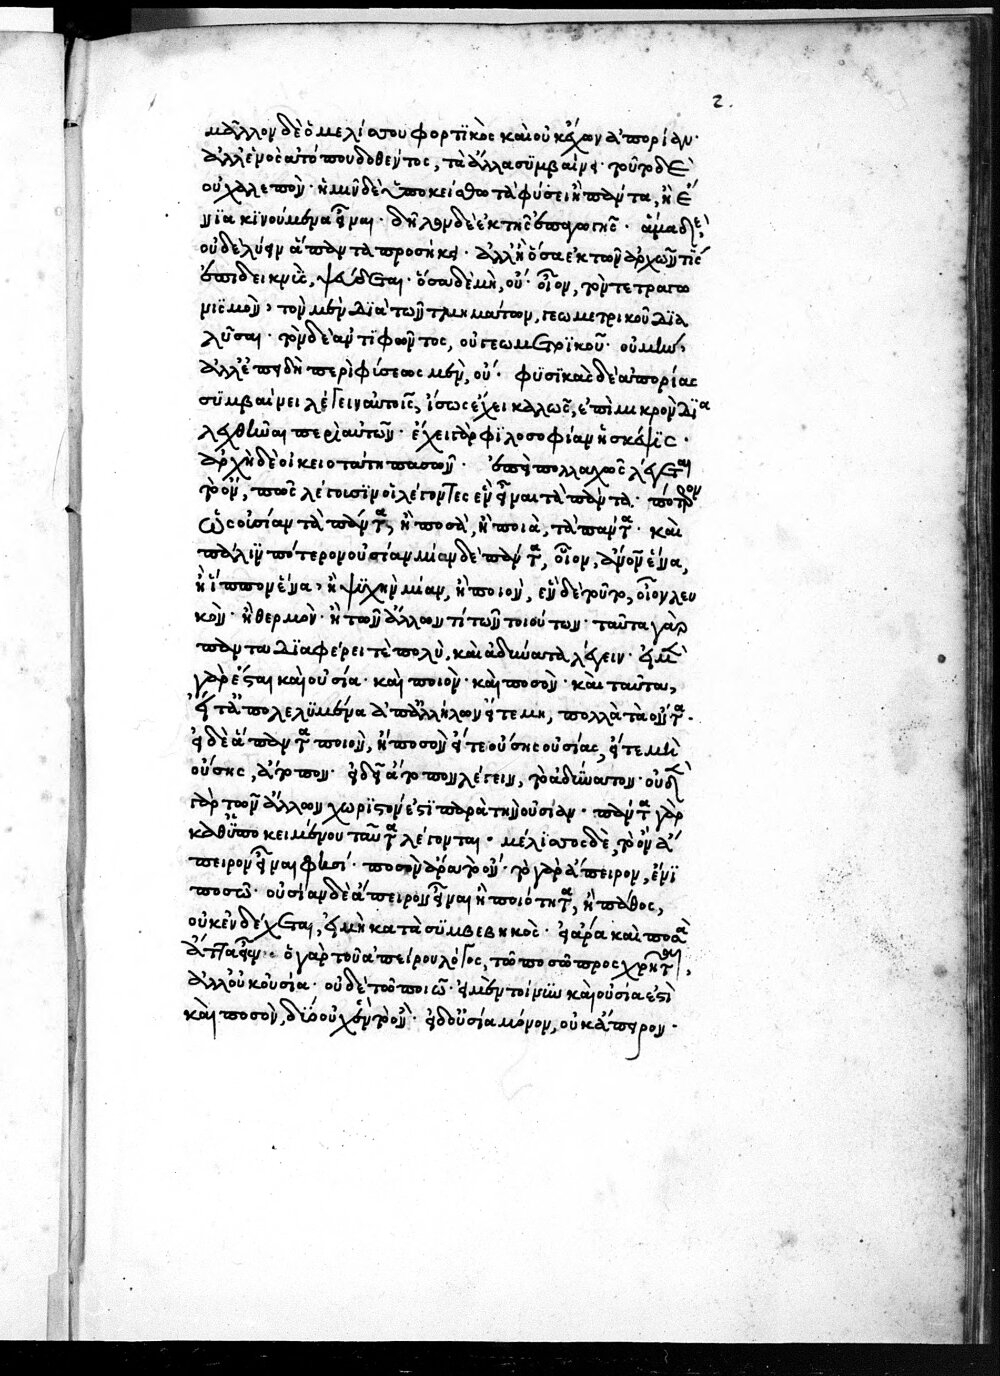 2.
μᾶλλον δὲ ὁ μελίσσου φορτϊκὸς καὶ οὐκ ἔχων ἀπορίαν·
ἀλλ' ἑνὸς ἀτόπου δοθέντος, τὰ ἄλλα συμβαίνει· τοῦτο δὲ
οὐ χαλεπόν· ἡμῖν δὲ ὑποκείσθω τὰ φύσει ἢ πάντα, ἢ ἔ
νϊα κινούμενα εἶναι· δῆλον δὲ ἐκ τῆς ἐπαγωγῆς· ἅμα δὲ,
οὐδὲ λύειν ἅπαντα προσήκει· ἀλλ' ἢ ὅσα ἐκ τῶν ἀρχῶν τίς
ἐπιδεικνὺς, ψεύδεται· ὅσα δὲ μὴ, οὔ· οἷον, τὸν τετραγω
νισμὸν, τὸν μὲν διὰ τῶν τμημάτων, γεωμετρικοῦ δϊα
λῦσαι· τὸν δὲ ἀντιφῶντος, οὐ γεωμετρϊκοῦ· οὐ μὴν,
ἀλλ' ἐπειδὴ περὶ φύσεως μὲν, οὔ· φϋσϊκὰς δὲ ἀπορίας
συμβαίνει λέγειν αὐτοῖς, ἴσως ἔχει καλῶς, ἐπὶ μικρὸν δϊα
λεχθῆναι περὶ αὐτῶν· ἔχει γὰρ φιλοσοφίαν ἡ σκέψις·
ἀρχὴ δὲ οἰκειοτάτη πασῶν· ἐπεὶ πολλαχῶς λέγεται
τὸ ὂν, πῶς λέγουσϊν οἱ λέγοντες ἓν εἶναι τὰ πάντα· πότερον
ὡς οὐσίαν τὰ πάντα, ἢ ποσὰ, ἢ ποιὰ, τὰ πάντα· καὶ
πάλιν πότερον οὐσίαν μίαν δὲ πάντα, οἷον, ἄνον ἕνα,
ἢ ἵππον ἕνα, ἢ ψϋχὴν μίαν, ἢ ποιὸν, ἓν δὲ τοῦτο, οἷον λευ
κὸν· ἢ θερμὸν· ἢ τῶν ἄλλων τί τῶν τοιούτων· ταῦτα γὰρ
πάντα διαφέρει τὲ πολὺ, καὶ ἀδύνατα λέγειν· εἰ μὲν
γὰρ ἔσται καὶ οὐσία· καὶ ποιὸν· καὶ ποσὸν· καὶ ταῦτα,
εἴτ' ἀπολελϋμένα ἀπ' ἀλλήλων εἴτε μὴ, πολλὰ τὰ ὄντα·
εἰ δὲ ἅπαντα ποιὸν, ἢ ποσὸν εἴτε οὔσης οὐσίας, εἴτε μὴ
οὔσης, ἄτοπον· εἰ δεῖ ἄτοπον λέγειν, τὸ ἀδύνατον· οὐδὲν
γὰρ τῶν ἄλλων χωρϊστόν ἐστϊ παρὰ τὴν οὐσίαν· πάντα γὰρ
καθ' ὑποκειμένου ταύτης λέγονται· μέλϊσσος δὲ, τὸ ὂν ἄ
πειρον εἶναι φησί· ποσὸν ἄρα τὸ ὄν· τὸ γὰρ ἄπειρον, ἐν τῶ
ποσῶ· οὐσίαν δὲ ἄπειρον εἶναι ἢ ποιότητα, ἢ πάθος,
οὐκ ἐνδέχεται, εἰ μὴ κατὰ συμβεβηκὸς· εἰ ἄρα καὶ ποσὰ
ἄττα εἶεν· ὁ γὰρ τοῦ ἀπείρου λόγος, τῶ ποσῶ προσχρῆται,
ἀλλ' οὐκ οὐσία· οὐδὲ τῶ ποιῶ· εἰ μὲν τοίνυν καὶ οὐσία ἐστὶ
καὶ ποσὸν, δύο οὐχ ἓν τὸ ὄν· εἰ δ' οὐσία μόνον, οὐκ ἄπειρον·